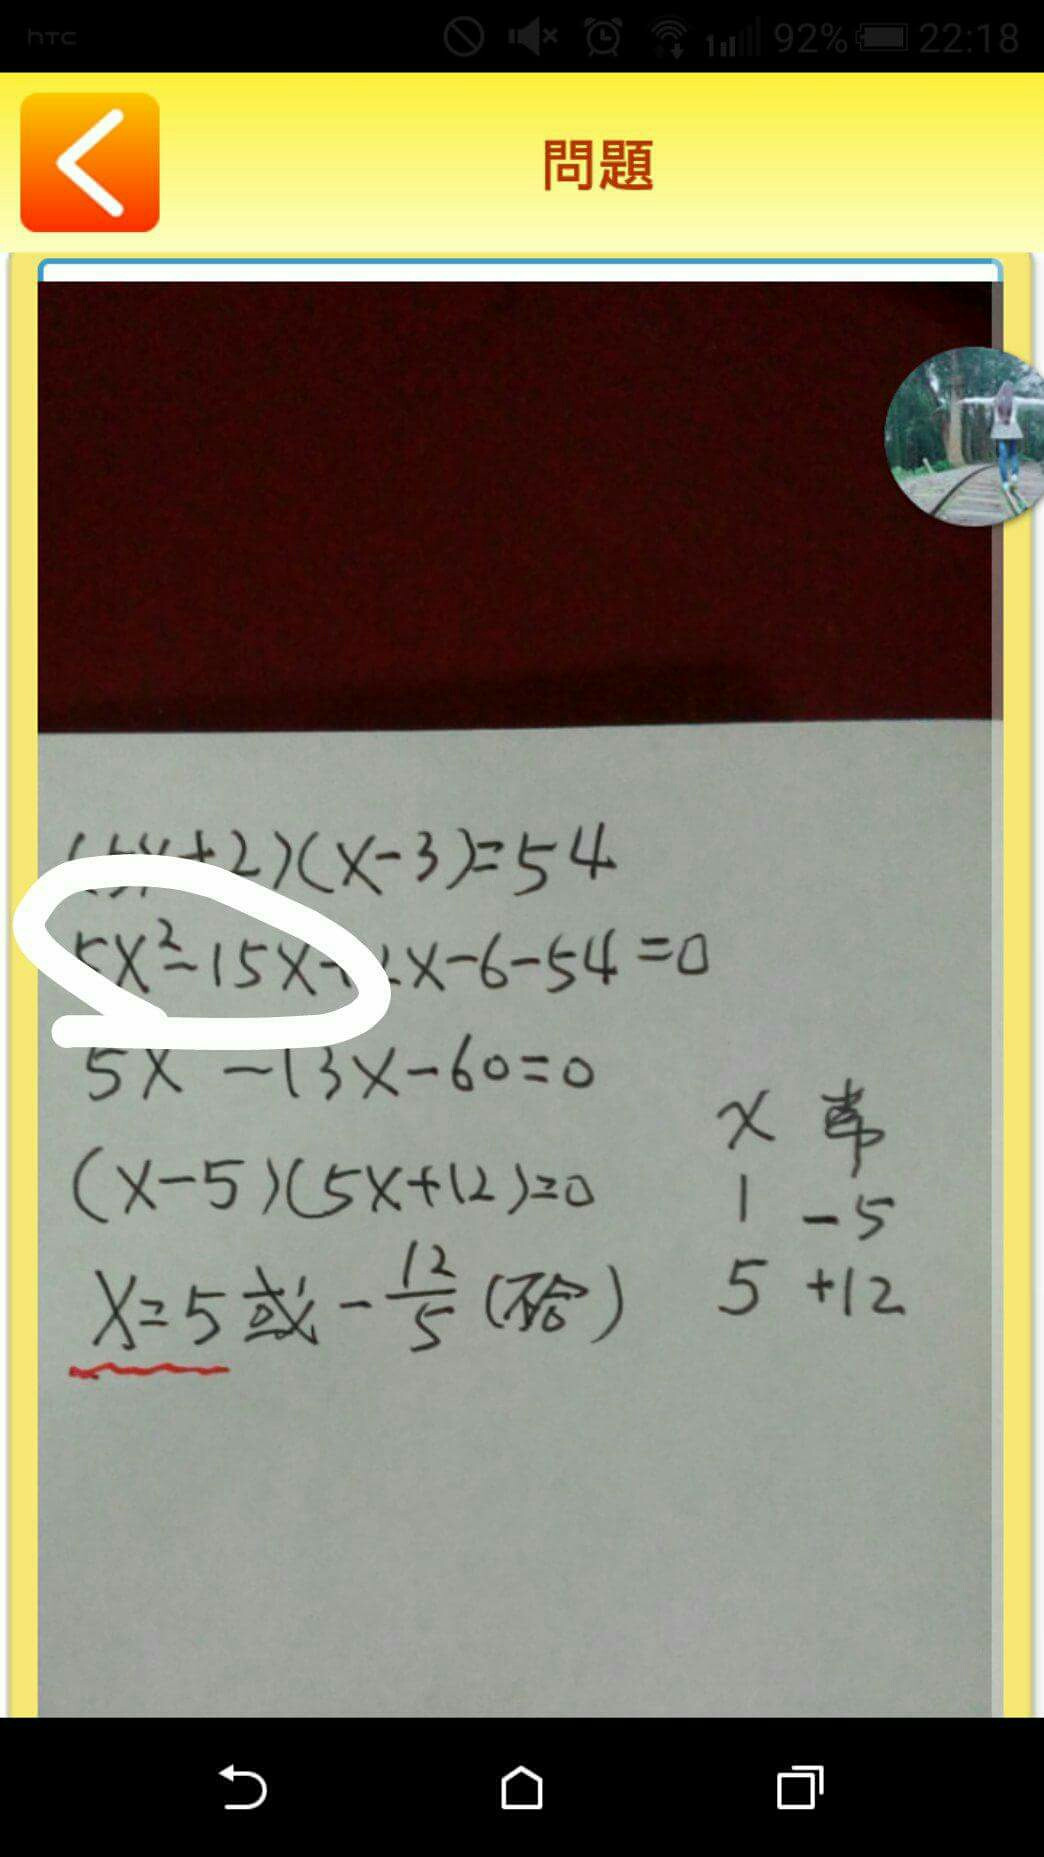 hTC 92% 22:18
問題
(5x+2)(x-3)=54
5x²-15x+2x-6-54=0
5x -13x-60=0
x 常
(x-5)(5x+12)=0
1 -5
x=5或-12/5(不合)
5 +12